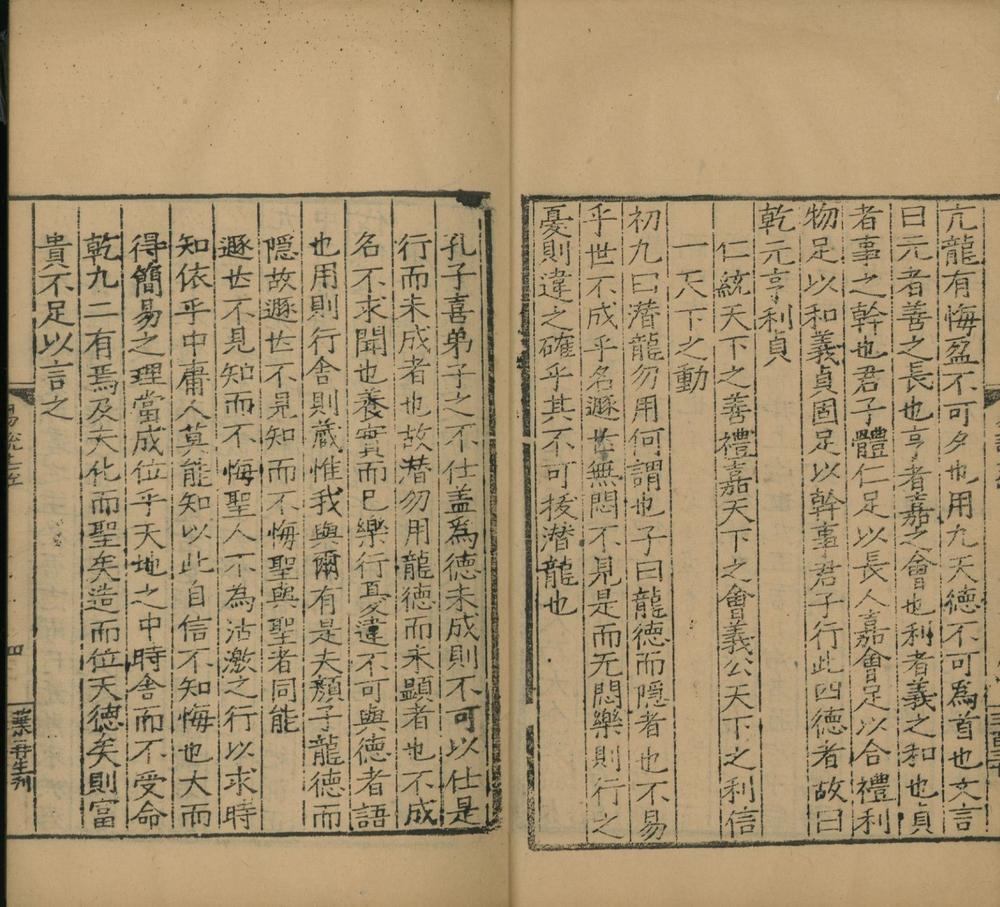 亢龍有悔盈不可久也用九天德不可為首也文言
曰元者善之長也亨者嘉之會也利者義之和也貞
者事之幹也君子體仁足以長人嘉會足以合禮利
物足以和義貞固足以幹事君子行此四德者故曰
乾元亨利貞
仁統天下之善禮嘉天下之會義公天下之利信
一天下之動
初九曰潜龍勿用何謂也子曰龍德而隱者也不易
乎世不成乎名遯世無悶不見是而无悶樂則行之
憂則違之確乎其不可抜潜龍也
孔子喜弟子之不仕盖爲德未成則不可以仕是
行而未成者也故潜勿用龍德而未顯者也不成
名不求聞也養實而已樂行憂違不可與德者語
也用則行舍則蔵惟我與爾有是夫顔子龍德而
隠故遯世不見知而不悔聖與聖者同能
遯世不見知而不悔聖人不為沽激之行以求時
知依乎中庸人莫能知以此自信不知悔也大而
得簡易之理當成位乎天地之中時舍而不受命
乾九二有焉及夫化而聖矣造而位天德矣則富
貴不足以言之
四
葉再生刋